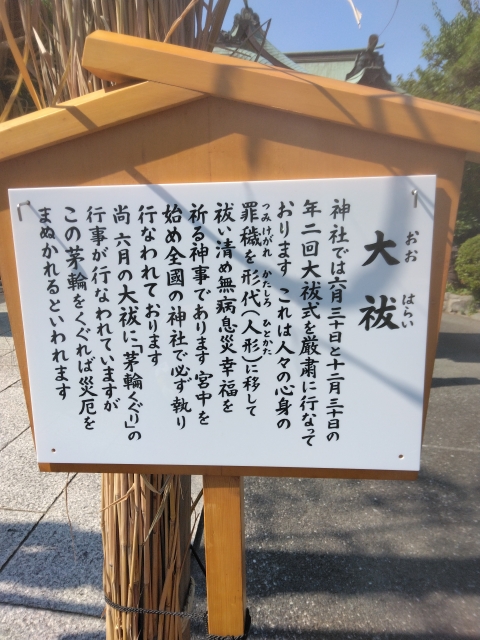 大祓
おお はらい
神社では六月三十日と十二月三十日の
年二回大祓式を厳粛に行なって
おります これは人々の心身の
罪穢を形代(人形)に移して
つみけがれ かたしろ ひとかた
祓い清め無病息災幸福を
祈る神事であります 宮中を
始め全國の神社で必ず執り
行なわれております
尚 六月の大祓に「茅輪くぐり」の
行事が行なわれていますが
この茅輪をくぐれば災厄を
まぬかれるといわれます